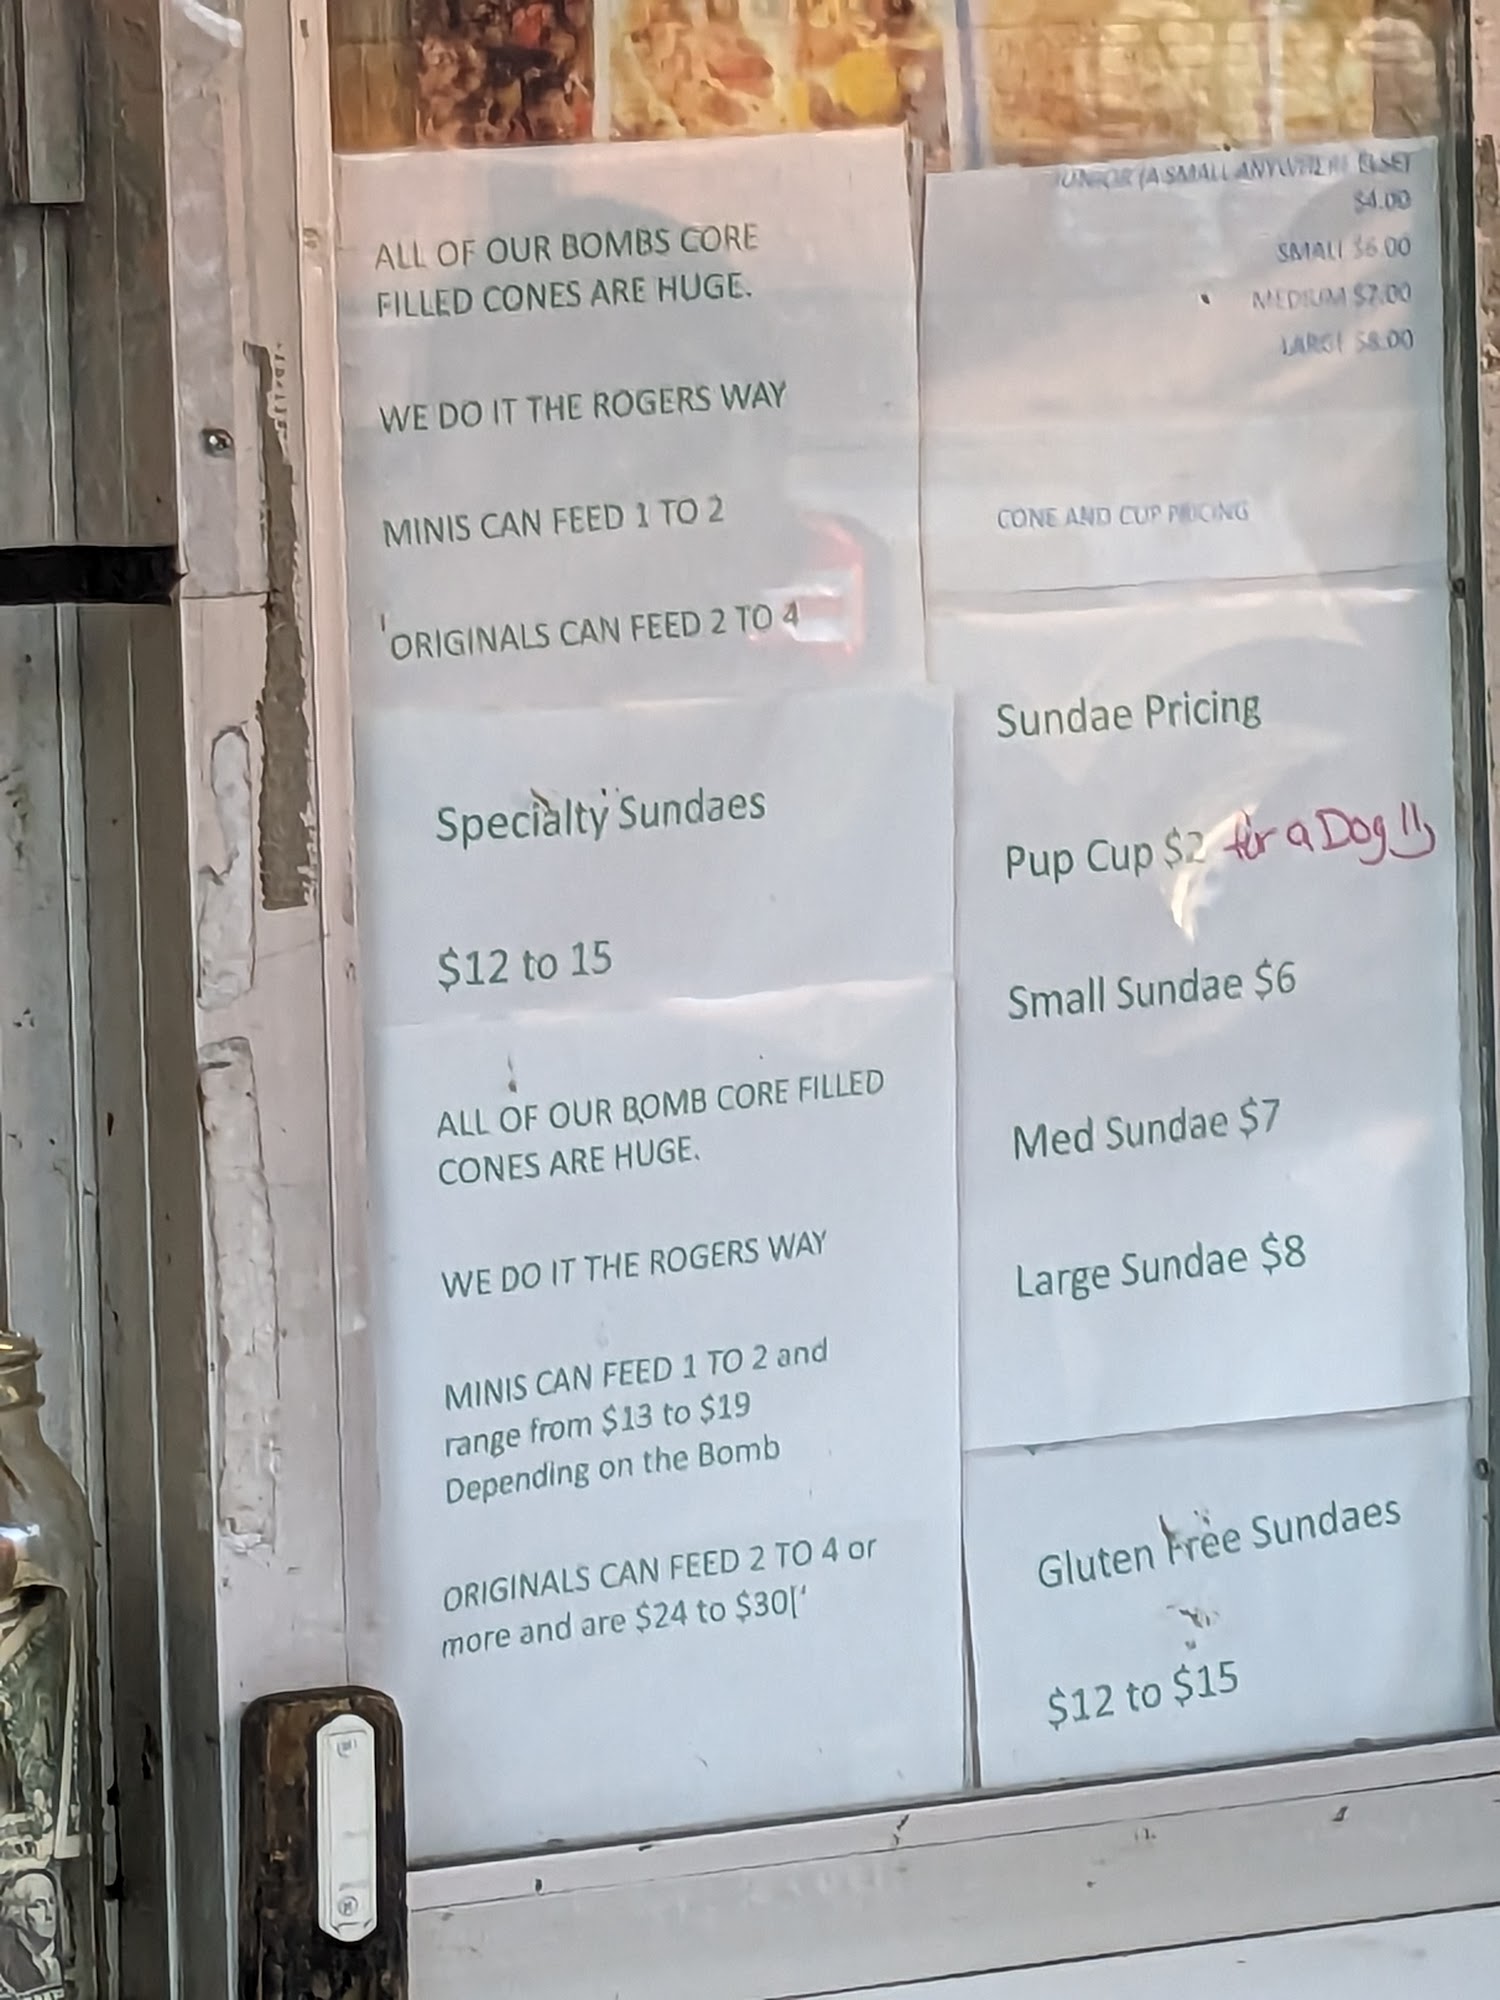 ALL OF OUR BOMBS CORE
FILLED CONES ARE HUGE.
WE DO IT THE ROGERS WAY
MINIS CAN FEED 1 TO 2
'ORIGINALS CAN FEED 2 TO 4
Specialty Sundaes
$12 to 15
ALL OF OUR BOMB CORE FILLED
CONES ARE HUGE.
WE DO IT THE ROGERS WAY
MINIS CAN FEED 1 TO 2 and
range from $13 to $19
Depending on the Bomb
ORIGINALS CAN FEED 2 TO 4 or
more and are $24 to $30['
JUNIOR (A SMALL ANYWHERE ELSE)
$4.00
SMALL $6.00
MEDIUM $7.00
LARGE $8.00
CONE AND CUP PRICING
Sundae Pricing
Pup Cup $2 for a Dog !!
Small Sundae $6
Med Sundae $7
Large Sundae $8
Gluten Free Sundaes
$12 to $15